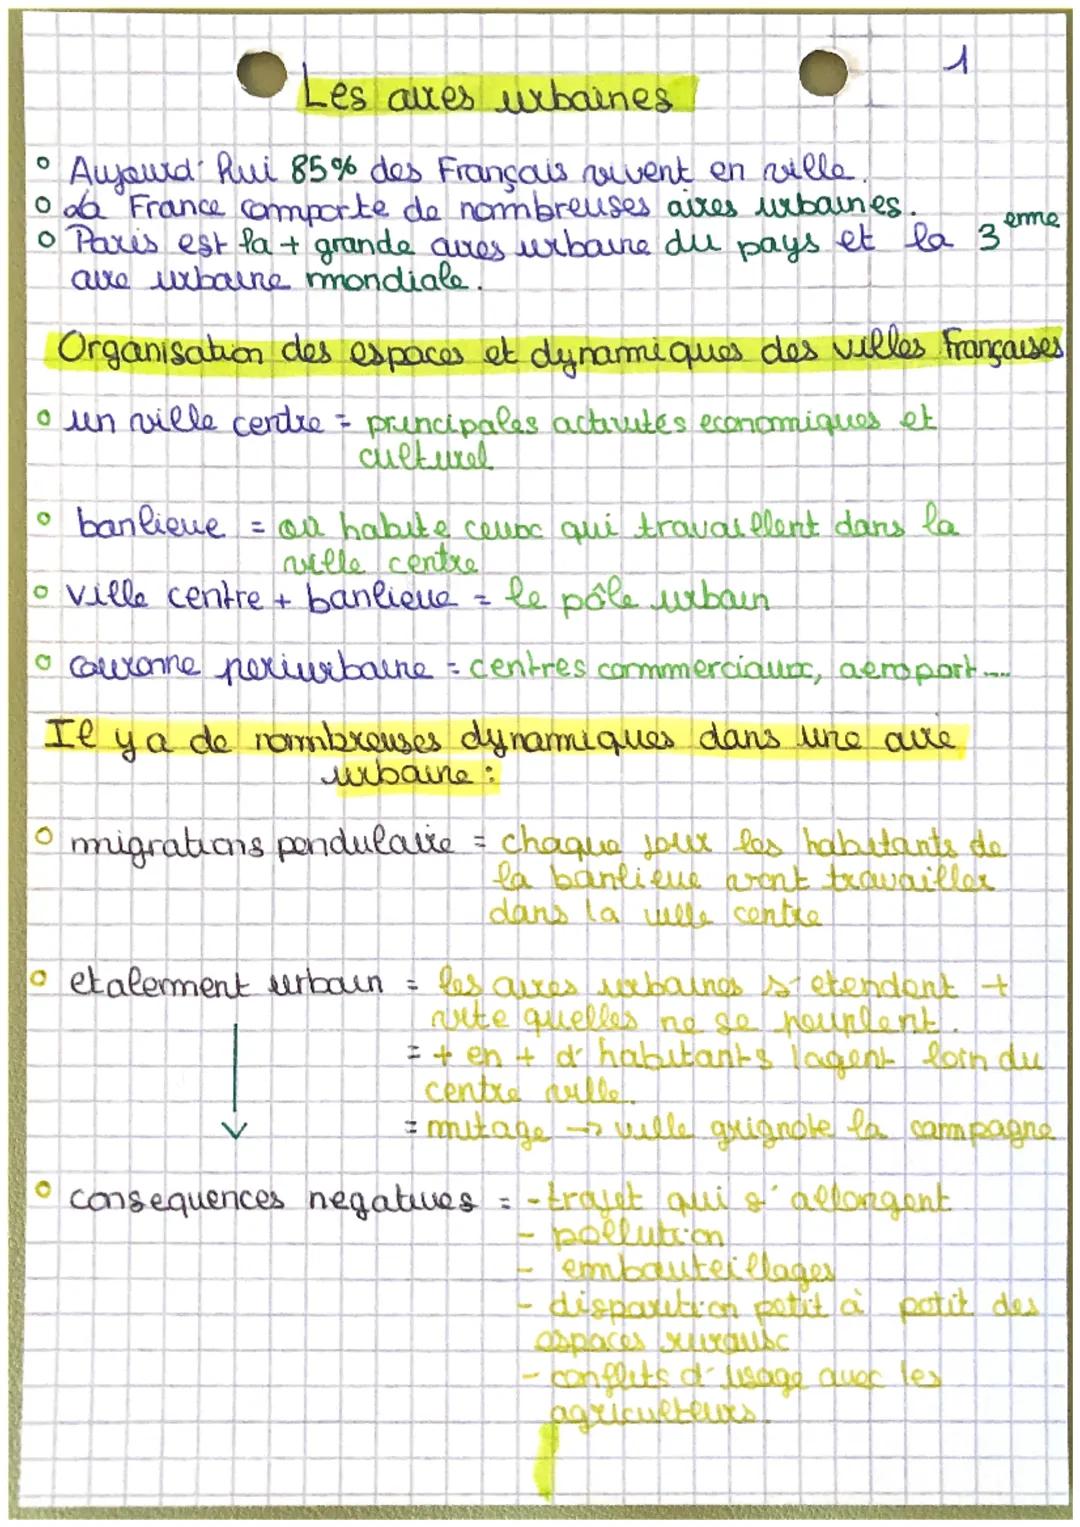 1
Les aires urbaines
Aujourd'hui 85% des Français vivent en ville.
La France comporte de nombreuses aires urbaines.
Paris est la + grande aires urbaine du pays et la 3 eme
aire urbaine mondiale.
Organisation des espaces et dynamiques des villes françaises
un ville centre = principales activités economiques et
culturel
banlieue = où habite ceux qui travaillent dans la
ville centre
ville centre + banlieue = le pôle urbain
couronne periurbaine = centres commmerciaux, aeroport....
Il y a de nombreuses dynamiques dans une aire
urbaine :
migrations pendulaire = chaque jour les habitants de
la banlieue vont travailler
dans la ville centre
etalement urbain = les aires urbaines s'etendent +
vite quelles ne se peuplent.
= + en + d'habitants lagent loin du
centre ville.
= mitage → ville grignote la campagne
consequences negatives = - trajet qui s'allongent
- pollution
- embouteillages
- disparition petit à petit des
espaces ruraux
- conflits d'usage avec les
agriculteurs.